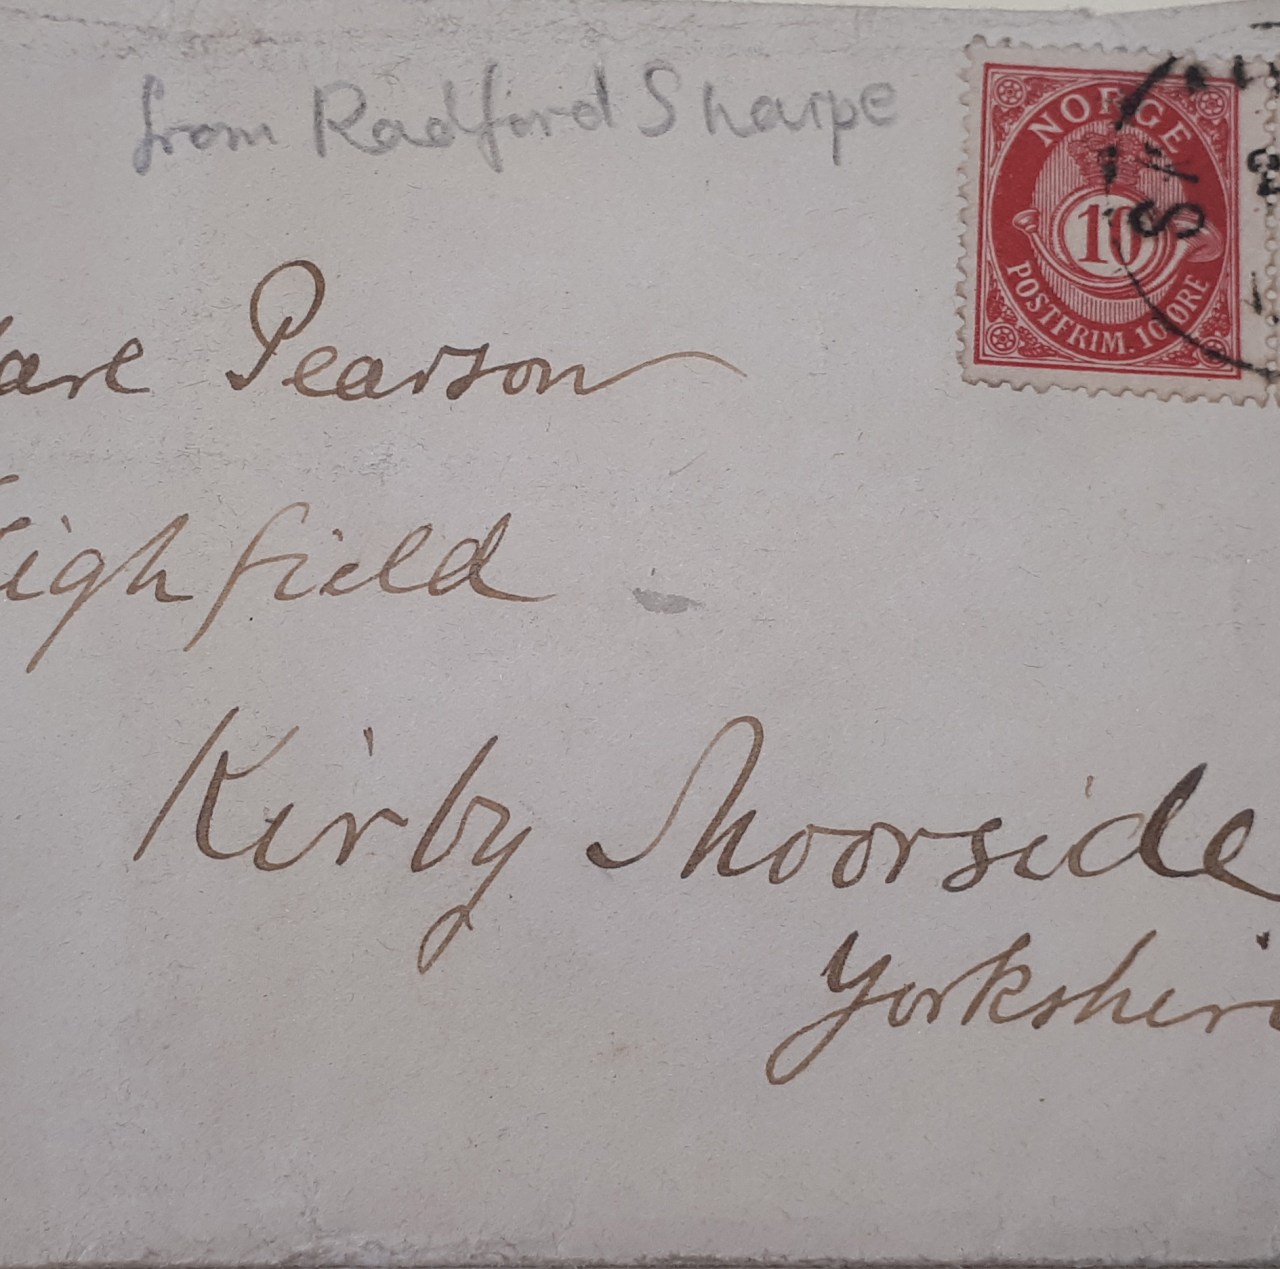 from Radford Sharpe
NORGE
10
POSTFRIM. 10 ØRE
are Pearson
eighfield
Kirby Moorside
Yorkshir